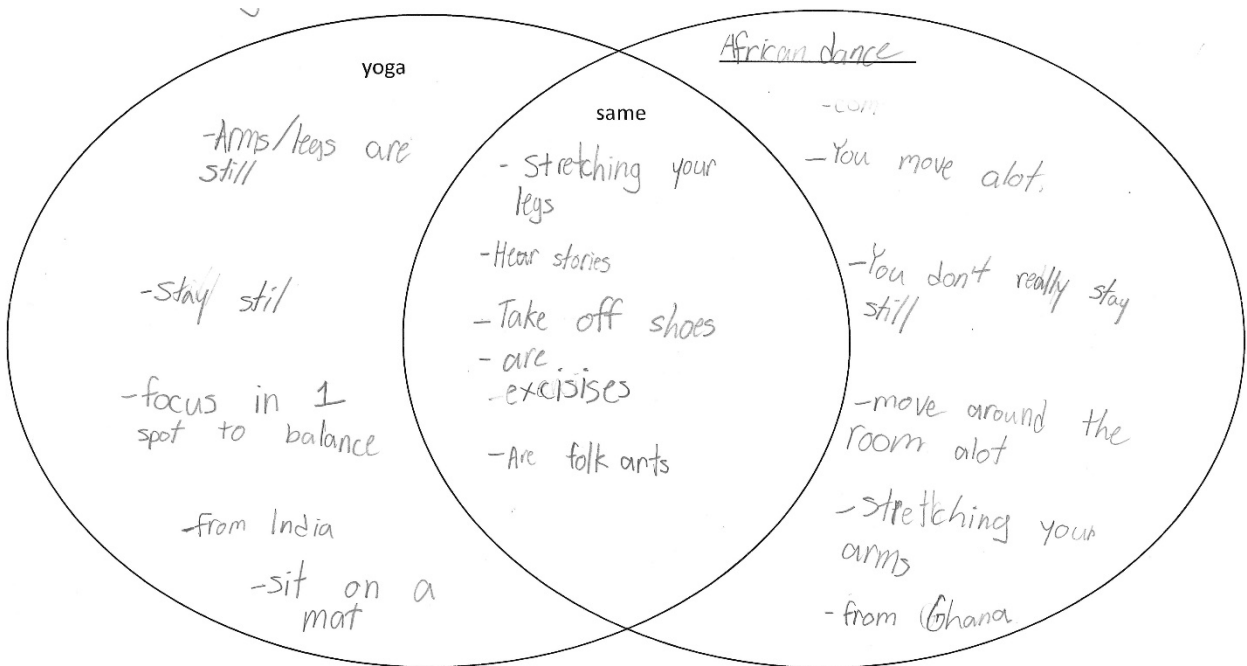 yoga
-Arms/legs are
still
-Stay stil
-focus in 1
spot to balance
-from India
-sit on a
mat
same
- Stretching your
legs
-Hear stories
-Take off shoes
- are
-excisises
-Are folk arts
African dance
-com
-You move alot.
-You don't really stay
still
-move around the
room alot
-stretching your
arms
-from Ghana